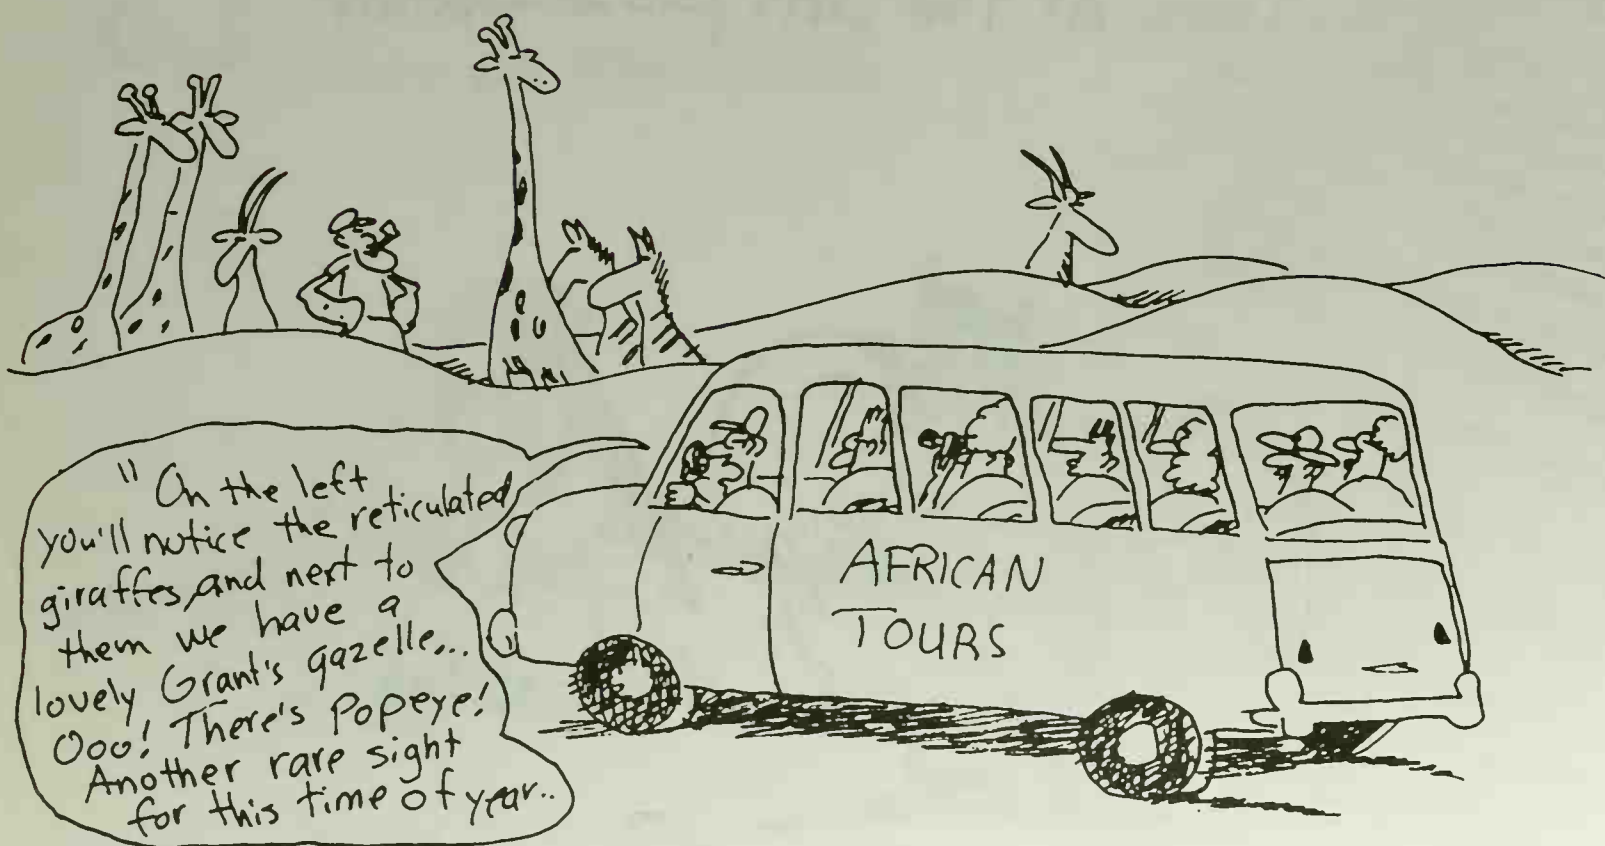 "On the left
you'll notice the reticulated
giraffes, and next to
them we have a
lovely Grant's gazelle...
Ooo! There's Popeye!
Another rare sight
for this time of year..
AFRICAN
TOURS